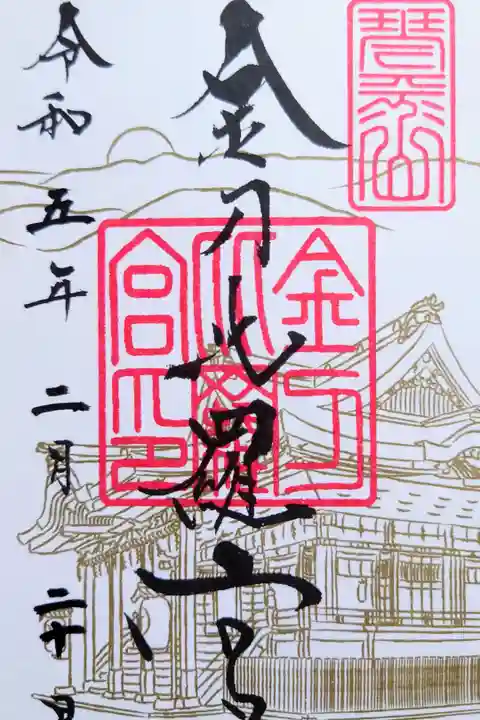 琴平山
金刀比羅宮
金刀比羅宮印
令和五年二月二十日